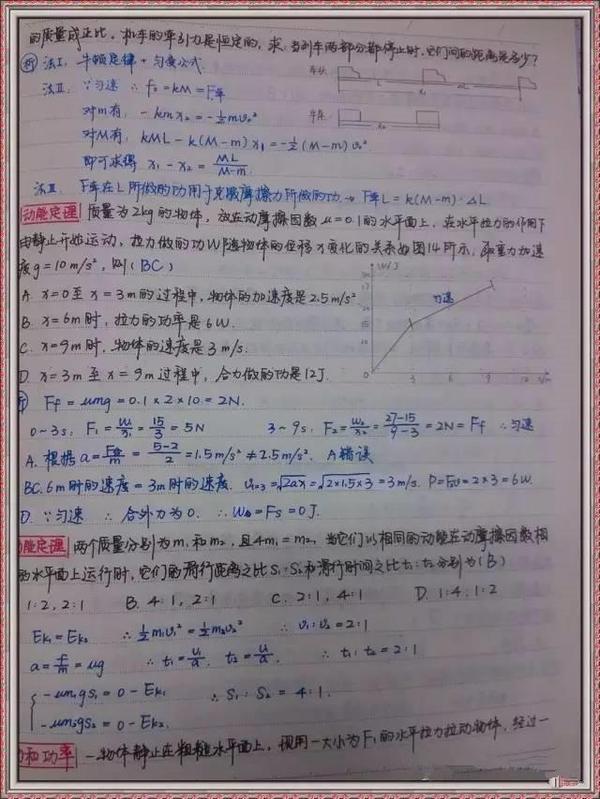 的质量成正比,机车的牵引力是恒定的,求:当列车两部分都停止时,它们间的距离是多少?
析 法I. 牛顿定律+匀变公式.
法II. ∵匀速 ∴f₀=kM=F车
对m有, -kmx₂=-½mv₀²
对M有, kML-k(M-m)x₁=-½(M-m)v₀²
即可求得 x₁-x₂=ML/(M-m)
法III. F车在L所做的功用于克服摩擦力所做的功→F车L=k(M-m)·ΔL
动能定理 质量为2kg的物体,放在动摩擦因数μ=0.1的水平面上,在水平拉力的作用下
由静止开始运动,拉力做的功W随物体的位移x变化的关系如图14所示,重力加速
度g=10m/s²,则(BC)
W/J
匀速
3
6
9
A. x=0至x=3m的过程中,物体的加速度是2.5m/s²
B. x=6m时,拉力的功率是6W.
C. x=9m时,物体的速度是3m/s.
D. x=3m至x=9m过程中,合力做的功是12J.
Ff=μmg=0.1×2×10=2N.
0~3s, F₁=W₁/x₁=15/3=5N 3~9s, F₂=W₂/x₂=(27-15)/(9-3)=2N=Ff ∴匀速
A. 根据a=F合/m=(5-2)/2=1.5m/s²≠2.5m/s². A错误
BC. 6m时的速度=3m时的速度. v₍ₓ₌₃₎=√2ax=√2×1.5×3=3m/s. P=Fv=2×3=6W.
D. ∵匀速 ∴合外力为0. ∴W合=Fs=0J.
动能定理 两个质量分别为m₁和m₂,且4m₁=m₂,当它们以相同的动能在动摩擦因数相
的水平面上运行时,它们的滑行距离之比s₁:s₂和滑行时间之比t₁:t₂分别为(B)
1:2,2:1 B. 4:1,2:1 C. 2:1,4:1 D. 1:4,1:2
Ek₁=Ek₂ ∴½m₁v₁²=½m₂v₂² ∴v₁:v₂=2:1
a=f/m=μg ∴t₁=v₁/a, t₂=v₂/a ∴t₁:t₂=2:1
-μm₁gs₁=0-Ek₁ ∴s₁:s₂=4:1.
-μm₂gs₂=0-Ek₂.
和功率 一物体静止在粗糙水平面上,现用一大小为F₁的水平拉力拉动物体,经过一